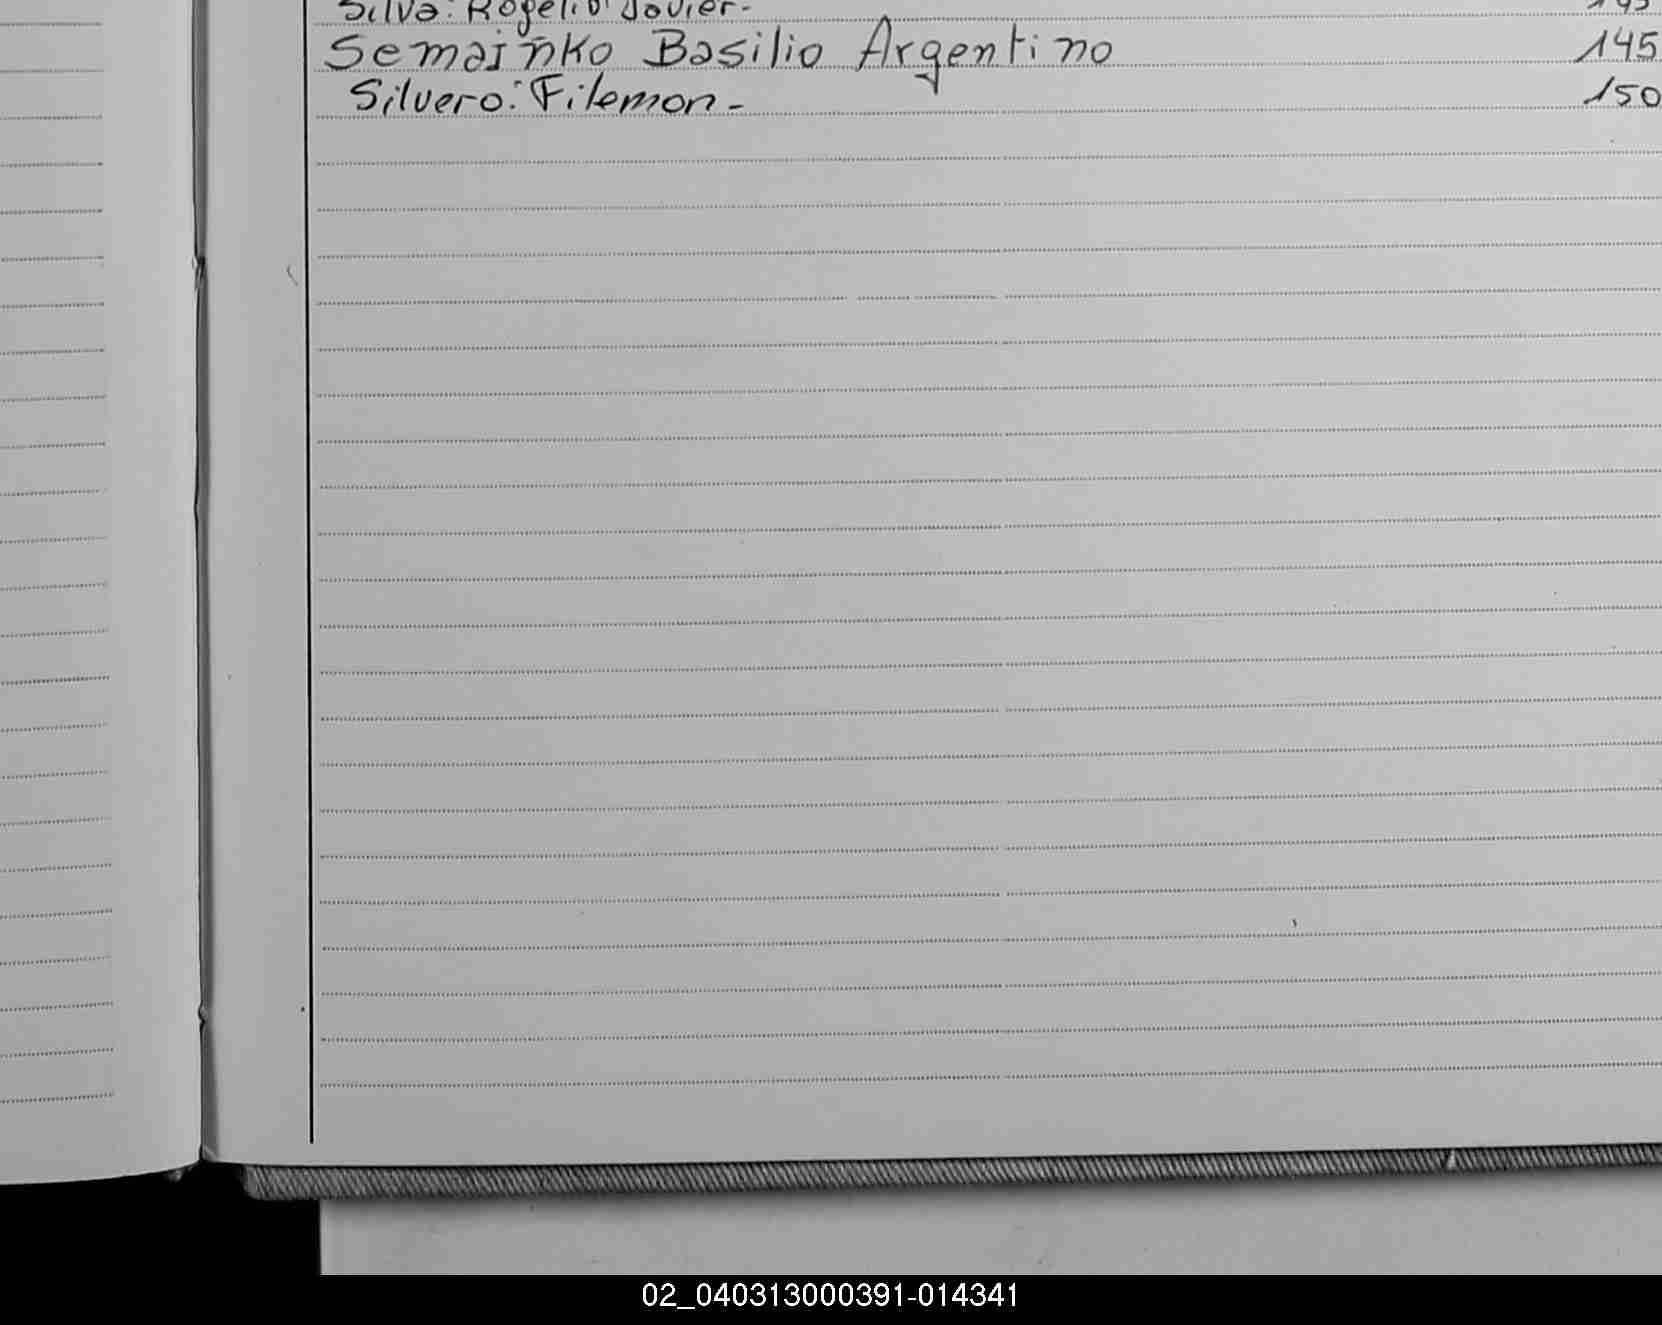 Silva: Rogelio Javier-
Semaiñko Basilio Argentino 145
Silvero: Filemon- 150
02_040313000391-014341